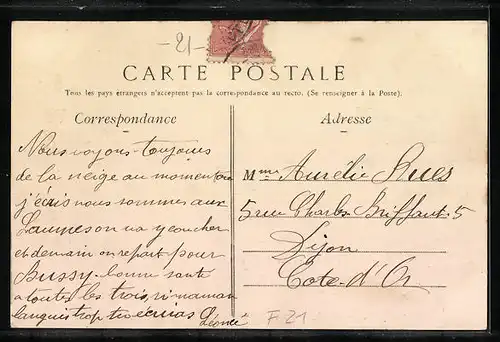 -21-
CARTE POSTALE
Tous les pays étrangers n'acceptent pas la correspondance au recto. (Se renseigner à la Poste).
Correspondance
Adresse
Nous voyons toujours
de la neige au moment ou
j'écris nous sommes aux
on va y coucher
et demain on repart pour
Bussy. bonne santé
a toutes les trois, si maman
languis trop tu écriras Léonce
Mme Aurélie
5 rue Charles Briffaut 5
Dijon
Cote-d'Or
F21